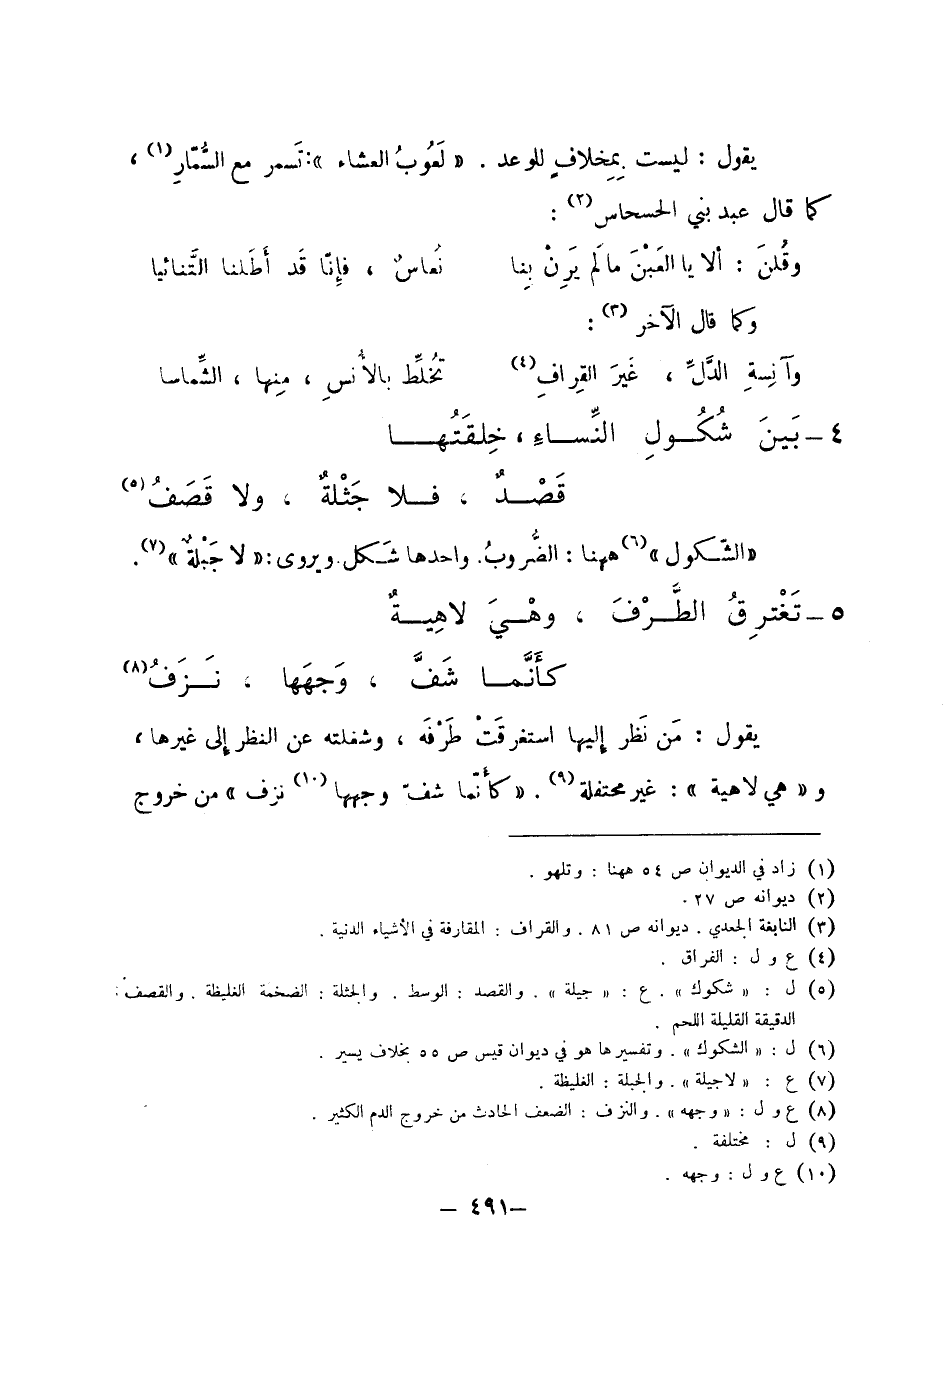 يقول : ليست بِمِخلافٍ للوعد . « لَعُوبُ العشاء »: تَسمر مع السُّمّارِ(١) ،
كما قال عبد بني الحسحاس(٢) :
وقُلنَ : ألا يا العَبْنَ ما لَم يَرِنْ بِنا نُعاسٌ ، فإِنّا قَد أَطَلنا التَّنائيا
وكما قال الآخر(٣) :
وآنِسةِ الدَّلِّ ، غَيرَ القِرافِ(٤) تُخلِّط بالأُنسِ ، مِنها ، الشِّماسا
٤ – بَينَ شُكُولِ النِّساءِ ، خِلقَتُها
قَصْدٌ ، فلا جَثْلةٌ ، ولا قَصَفُ(٥)
«الشّكول»(٦) ههنا : الضُّروبُ. واحدها شَكل. ويروى : « لا جَبْلةٌ »(٧).
٥ – تَغْترِقُ الطَّرْفَ ، وهْيَ لاهِيةٌ
كأَنَّما شَفَّ ، وَجهَها ، نَزَفُ(٨)
يقول : مَن نَظر إليها استغرقَتْ طَرْفَه ، وشغلته عن النظر إلى غيرها ،
و « هي لاهية » : غير محتفلة(٩) . « كأنّما شفّ وجهها(١٠) نزف » من خروج
(١) زاد في الديوان ص ٥٤ ههنا : وتلهو .
(٢) ديوانه ص ٢٧ .
(٣) النابغة الجعدي . ديوانه ص ٨١ . والقراف : المقارفة في الأشياء الدنية .
(٤) ع و ل : الفراق .
(٥) ل : « شكوك » . ع : « جيلة » . والقصد : الوسط . والجثلة : الضخمة الغليظة . والقصف :
الدقيقة القليلة اللحم .
(٦) ل : « الشكوك » . وتفسيرها هو في ديوان قيس ص ٥٥ بخلاف يسير .
(٧) ع : « لاجيلة » . والجبلة : الغليظة .
(٨) ع و ل : « وجهه » . والنزف : الضعف الحادث من خروج الدم الكثير .
(٩) ل : مختلفة .
(١٠) ع و ل : وجهه .
– ٤٩١ –